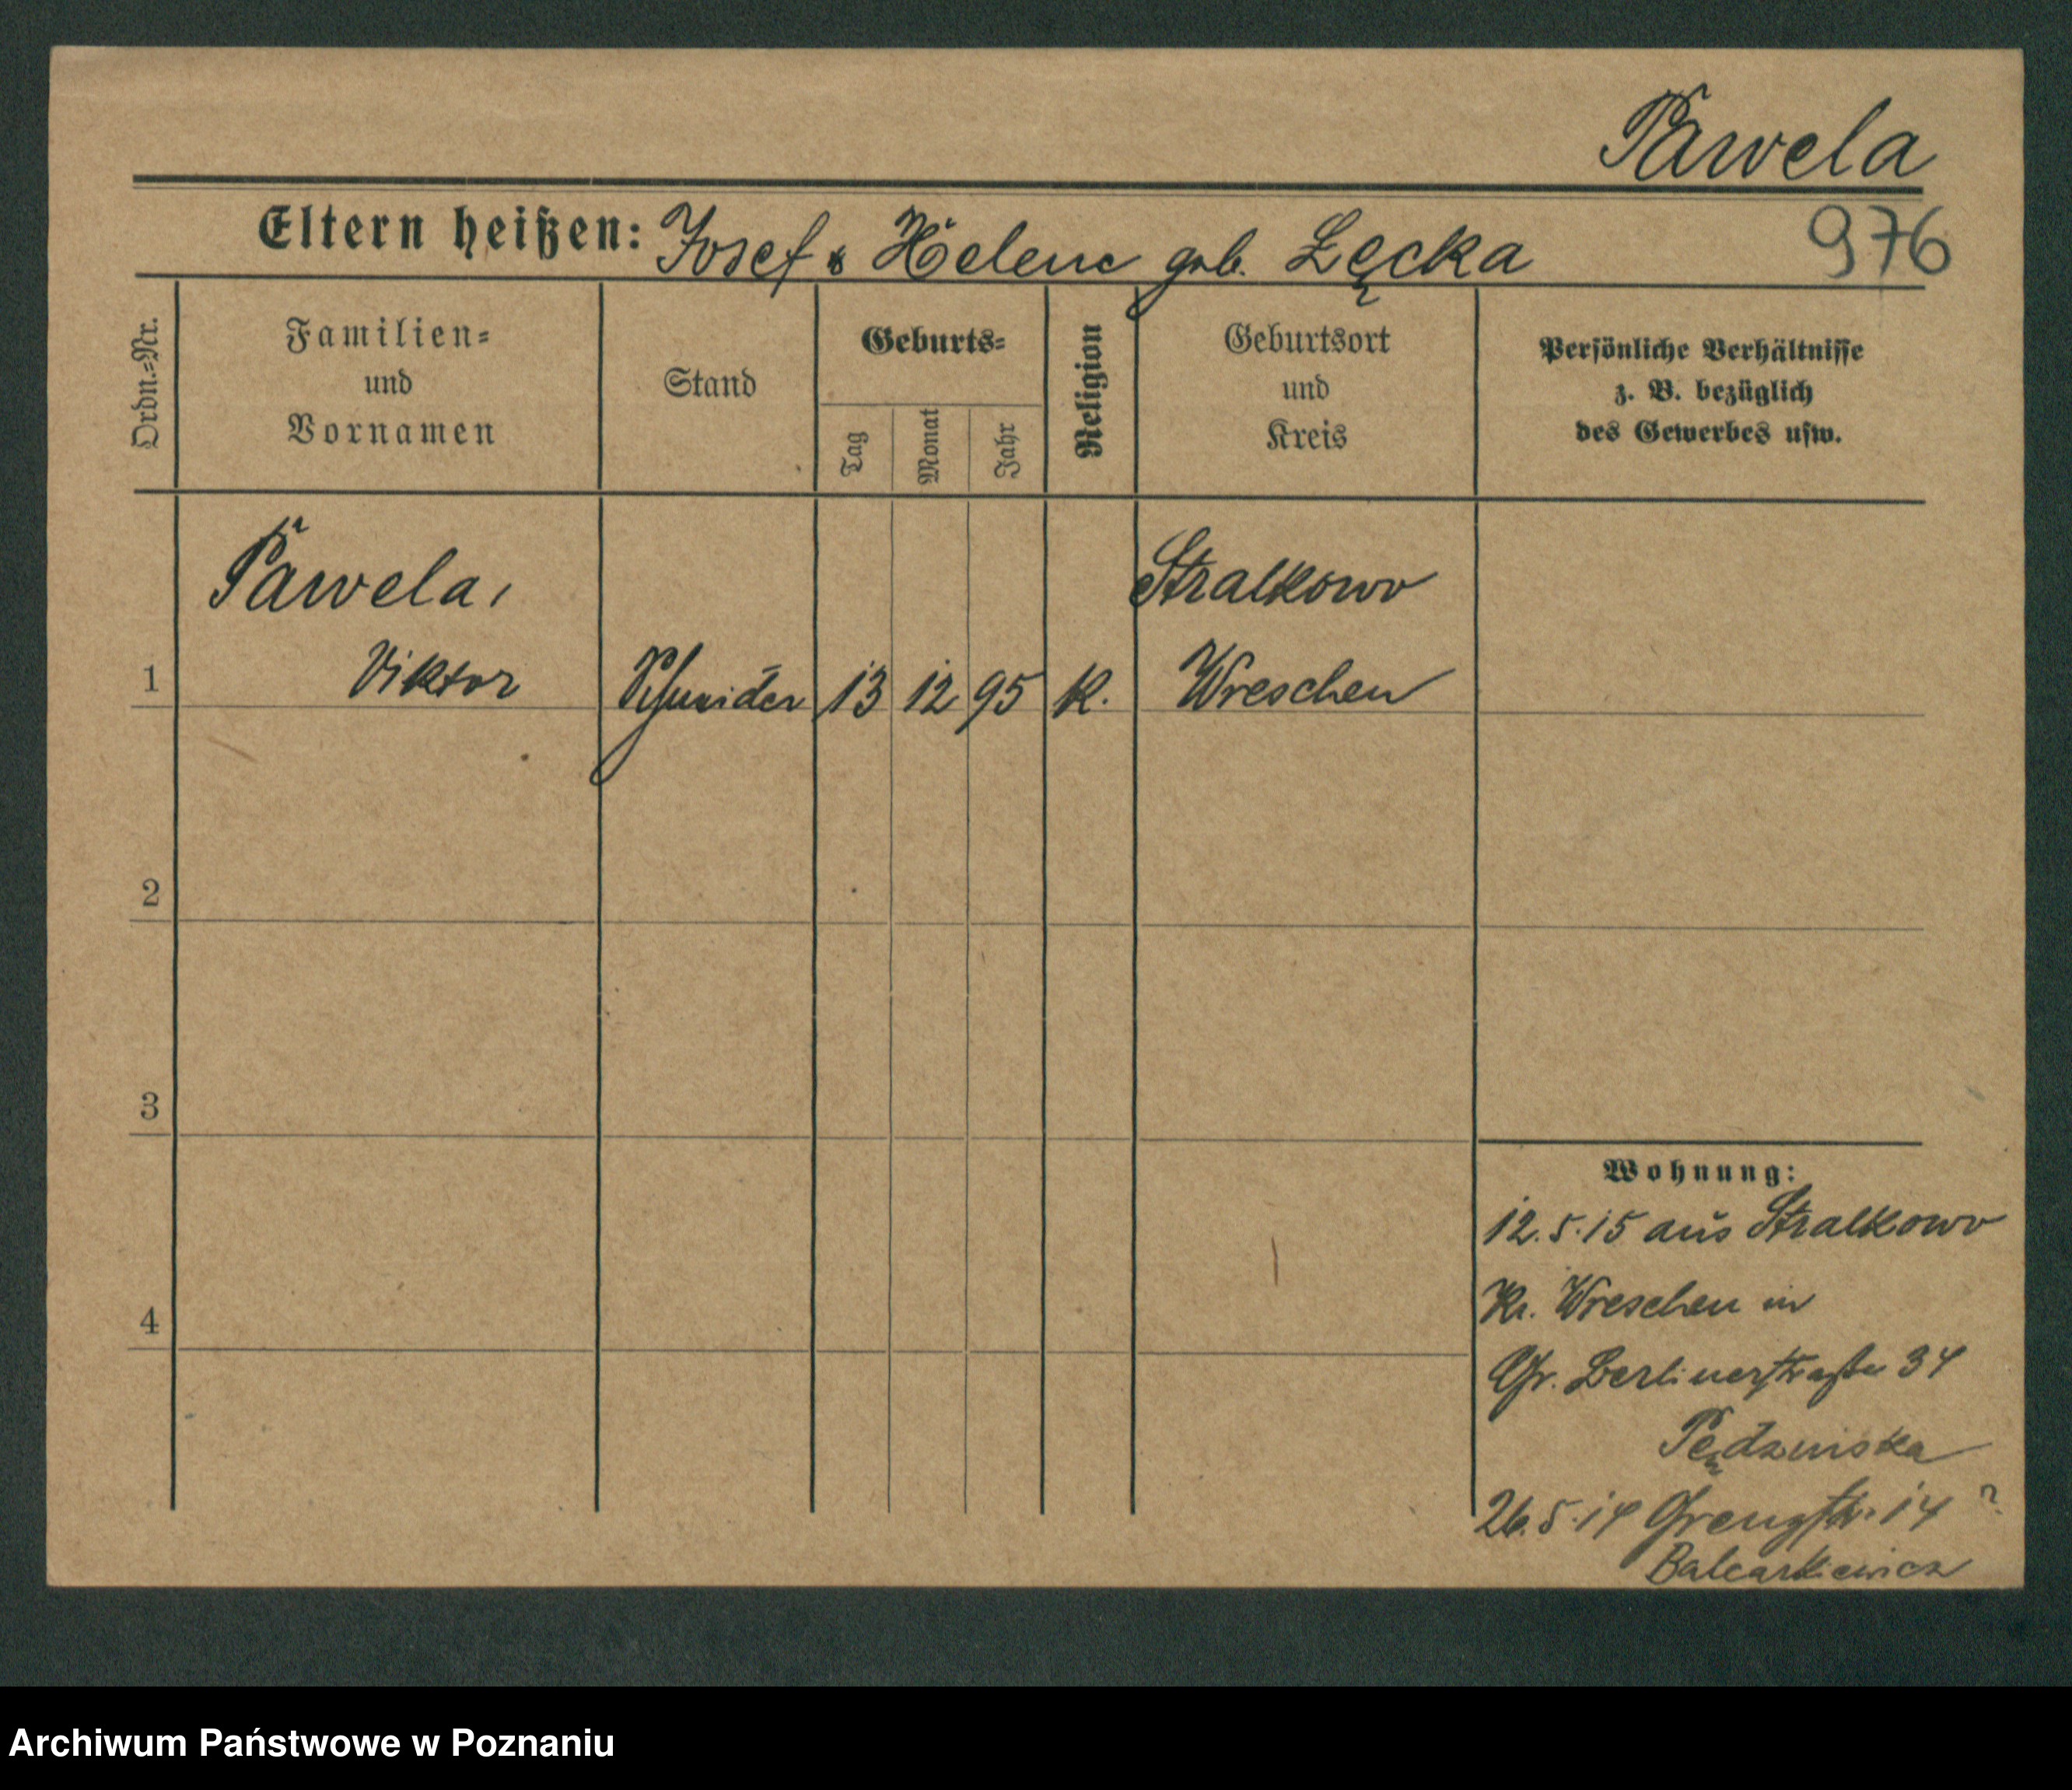 Pawela
Eltern heißen: Josef & Helene geb. Łęcka
976
Ordn.-Nr.
Familien-
und
Vornamen
Stand
Geburts-
Tag
Monat
Jahr
Religion
Geburtsort
und
Kreis
Persönliche Verhältnisse
z. B. bezüglich
des Gewerbes usw.
Pawela,
Stralkowo
1 Viktor Schneider 13 12 95 K. Wreschen
2
3
4
Wohnung:
12.5.15 aus Stralkowo
Kr. Wreschen in
Gr. Berlinerstraße 34
26.5.14 Grenzstr. 14 ?
Archiwum Państwowe w Poznaniu